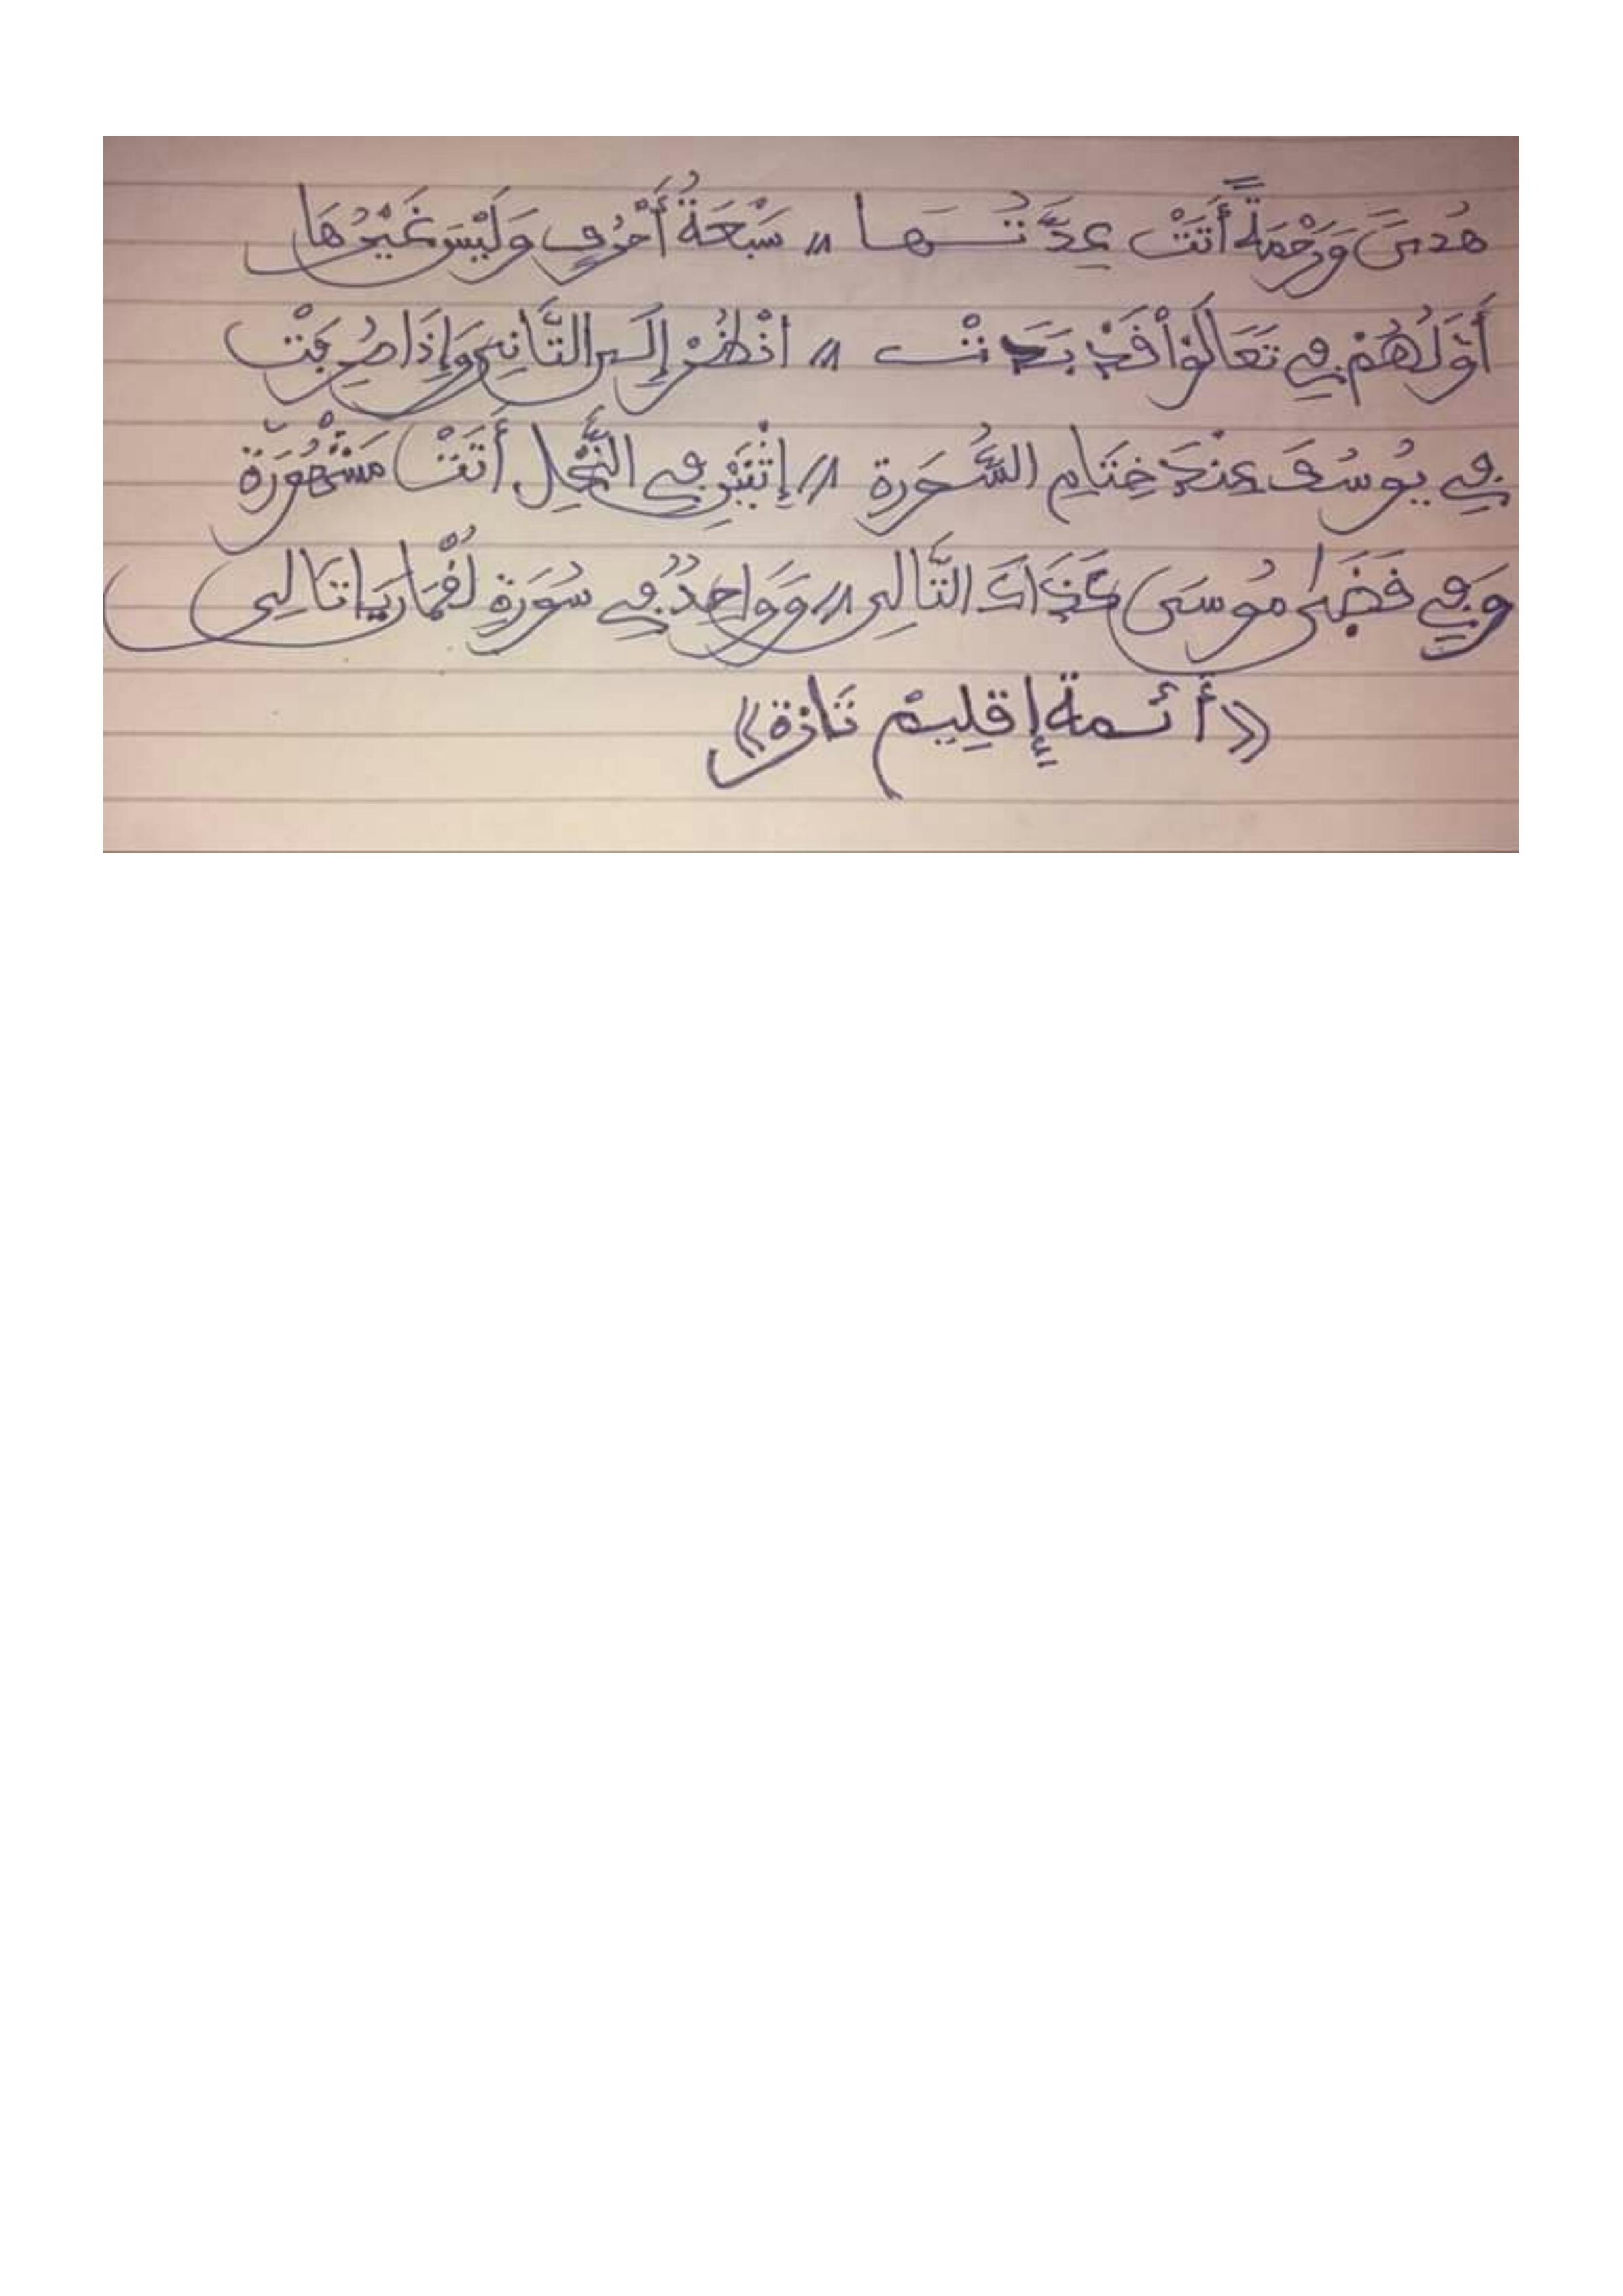 هُدىً وَرَحْمَةً أَتَتْ عِدَّتُـهَا // سَبْعَةُ أَحْرُفٍ وَلَيْسَ غَيْرُهَا
أَوَّلُهُمْ فِي تَعَالَوْاْ قَدْ بَدَتْ // انْظُرْ إِلَى التَّانِي وَإِذَا صُرِفَتْ
فِي يُوسُفَ عِنْدَ خِتَامِ السُّورَةِ // إِثْنَيْنِ فِي النَّحْلِ أَتَتْ مَشْهُورَةْ
وَفِي قَضَى مُوسَى كَذَاكَ التَّالِي // وَوَاحِدٌ فِي سُورَةِ لُقْمَانَ يَا تَالِي
«أئـمة إقلِيمْ تَازة»